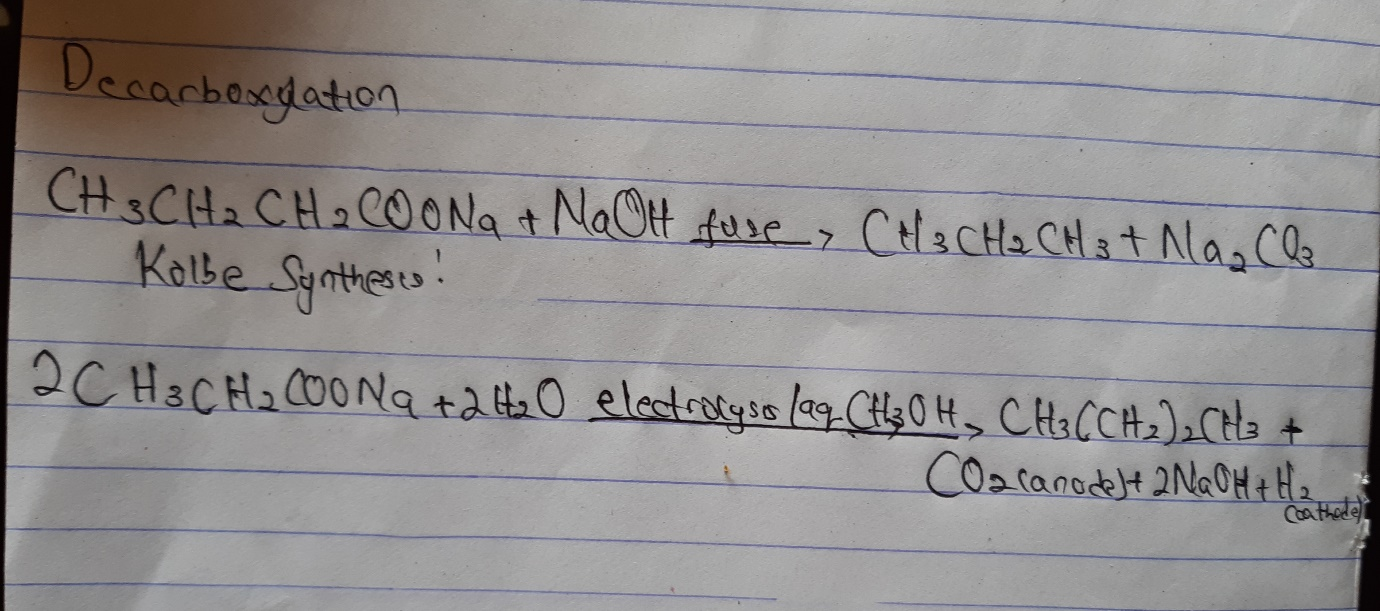 Decarboxylation
CH3CH2CH2COONa + NaOH fuse> CH3CH2CH3 + Na2CO3
Kolbe Synthesis!
2CH3CH2COONa + 2H2O electrolysis/aq CH3OH> CH3(CH2)2CH3 +
CO2 (anode) + 2NaOH + H2
(cathode)